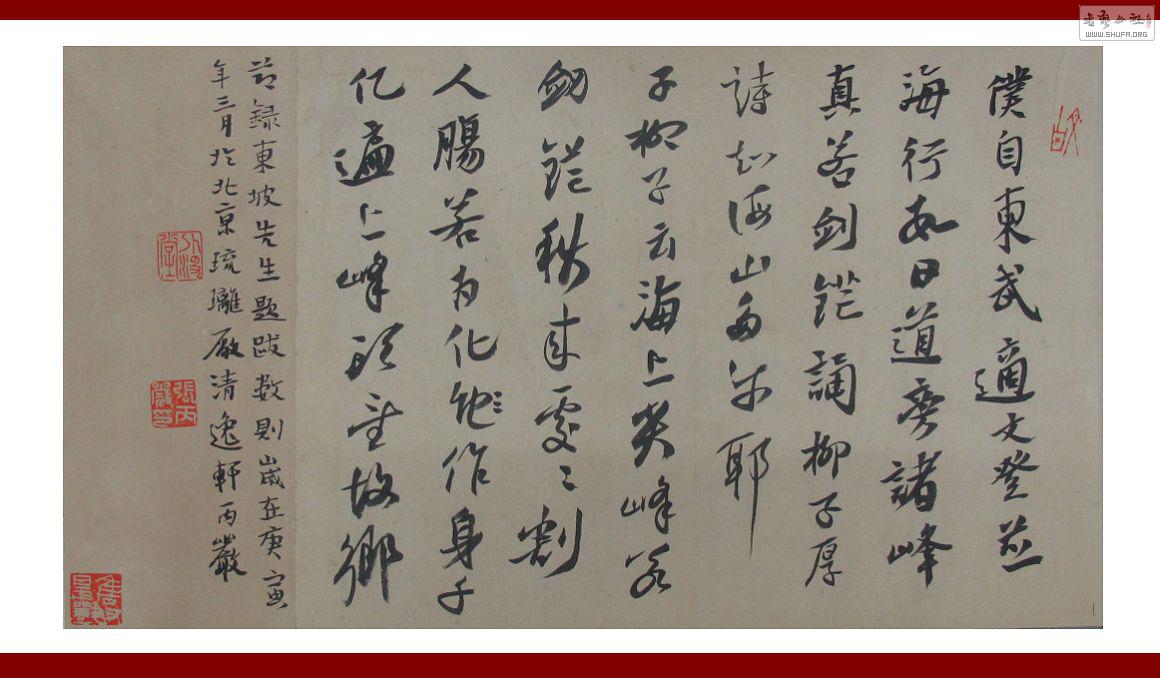 僕自東武適文登並
海行数日道旁諸峰
真若劍鋩誦柳子厚
詩知海山多尔耶
子柳子云海上尖峰若
劒鋩秋来處〻割
人腸若為化作身千
亿遍上峰頭望故鄉
節録東坡先生題跋数則歲在庚寅
年三月於北京琉璃廠清逸軒丙嚴
張丙嚴印
書法公社
WWW.SHUFA.ORG